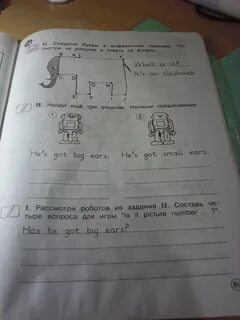 G. Соедини буквы в алфавитном порядке. По-
смотри на рисунок и ответь на вопрос.
What is it?
It's an elephant
H. Найди ещё три отличия. Напиши предложения.
1
2
He's got big ears.
He's got small ears.
I. Рассмотри роботов из задания H. Составь че-
тыре вопроса для игры "Is it picture number ... ?"
Has he got big ears?